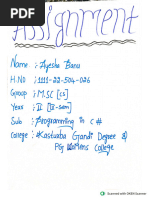 Assignment
Name : Ayesha Banu
H.NO : 1111-22-504-026
Group : M.SC [CS]
Year : II [II-Sem]
Sub : Programming in C#
College : Kastuaba Gandi Degree &
PG Womens College
Scanned with OKEN Scanner